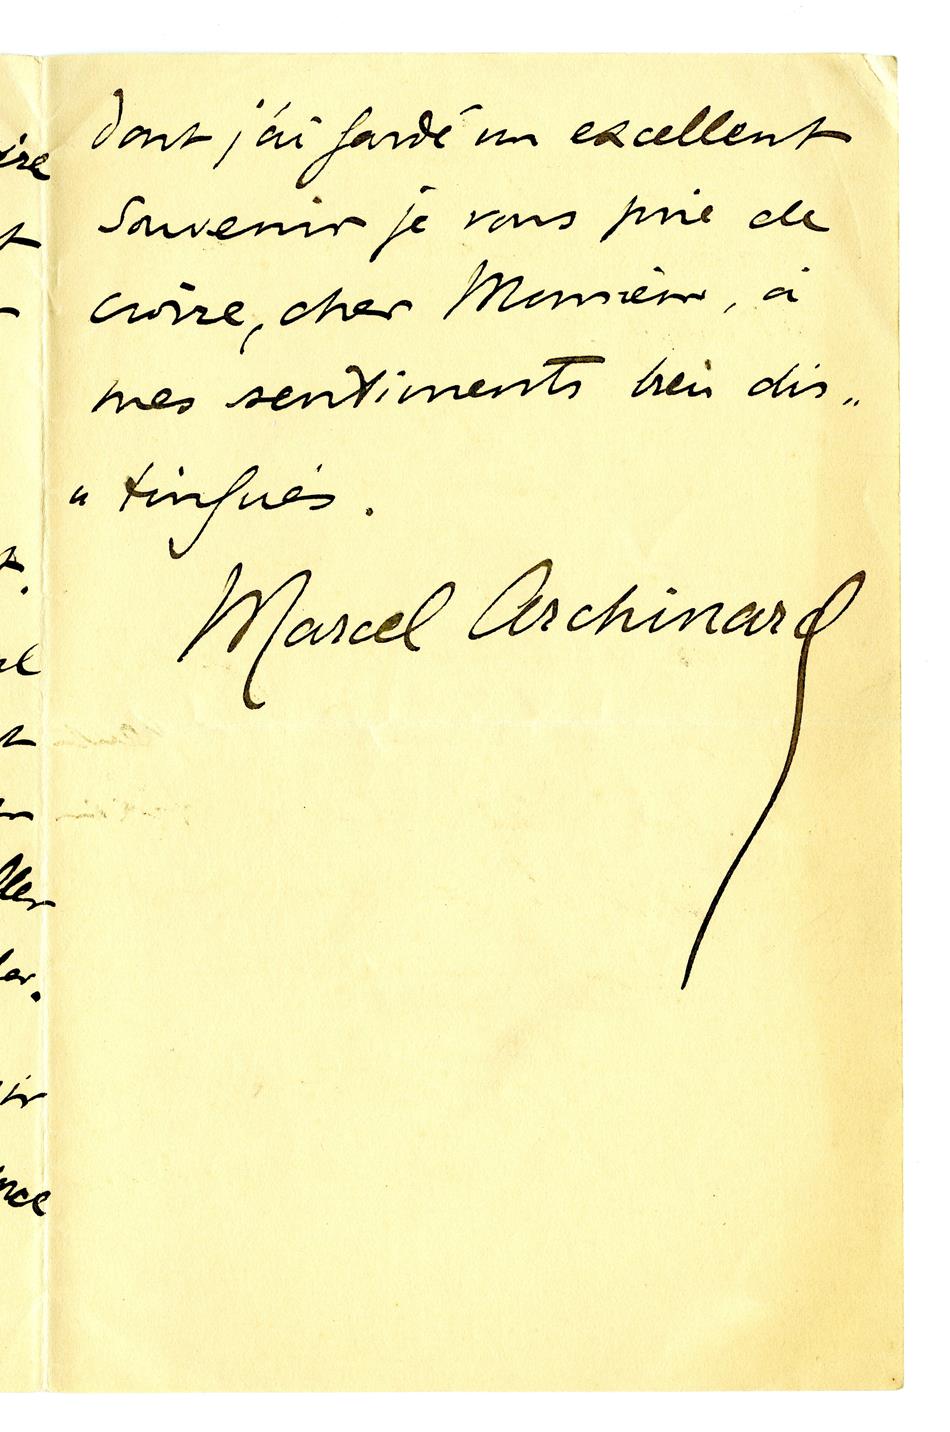 dont j'ai gardé un excellent
souvenir je vous prie de
croire, cher Monsieur, à
mes sentiments bien dis„
„ tingués.
Marcel Archinard